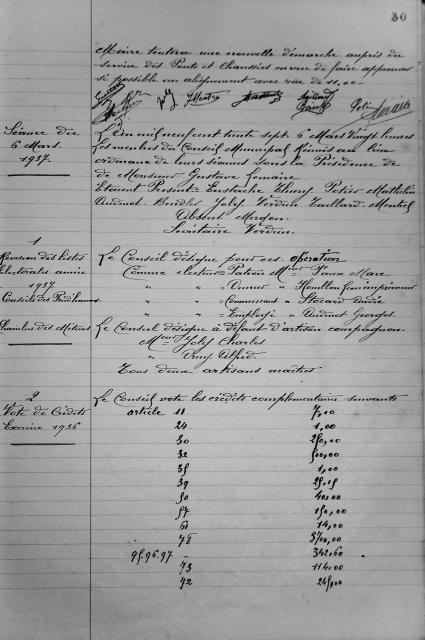 30
Maire tentera une nouvelle démarche auprès du
service des Ponts et Chaussées en vue de faire approuver
si possible un alignement avec rue de 11,00
Séance du
6 Mars.
1937.
L'An mil neuf cent trente sept. 6 Mars Vingt heures
Les membres du Conseil Municipal Réunis au lieu
ordinaire de leurs séances sous la Présidence de
de Monsieur Gustave
Etaient Présents Eustache Thuny Potier Mathelin
Audinet. Jolef Verdun Taillard. Mentrel
Absent Morgon.
Secrétaire Verdun.
1
Révision des listes
électorales année
1937
Conseils des Prudhommes
Le Conseil désigne pour ces opération
Comme électeur Patron Mr Jeux Marc
" " = Ouvrier " Houillon
" " = Commerçant " Stocard André
" " = Employé " Audinet Georges.
Chambre des Métiers
Le Conseil désigne à défaut d'artisan compagnon
Jolef Charles
" Alfred.
Tous deux artisans maîtres
2
Vote de Crédits
Exercice 1936
Le Conseil vote les crédits complémentaires suivants
article 11 7,00
24 1,00
30 250,00
32 500,00
35 1,00
39 25,15
50 40,00
57 150,00
61 14,00
78 3700,00
95.96.97 - 342,60
73 114,00
72 245,00